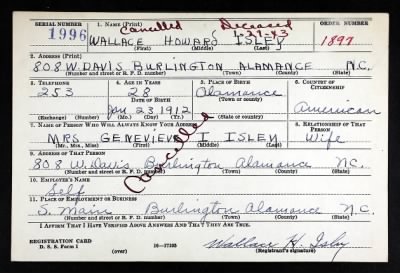 SERIAL NUMBER 1. NAME (Print) ORDER NUMBER
Cancelled Deceased
1-29-43
1996 WALLACE HOWARD ISLEY 1897
(First) (Middle) (Last)
2. ADDRESS (Print)
808 W. DAVIS BURLINGTON ALAMANCE N.C.
(Number and street or R. F. D. number) (Town) (County) (State)
3. TELEPHONE 4. AGE IN YEARS 5. PLACE OF BIRTH 6. COUNTRY OF CITIZENSHIP
253 28 Alamance
DATE OF BIRTH (Town or county)
Jan 23 1912 N.C. American
(Exchange) (No.) (Mo.) (Day) (Yr.) (State or country)
7. NAME OF PERSON WHO WILL ALWAYS KNOW YOUR ADDRESS 8. RELATIONSHIP OF THAT PERSON
MRS GENEVIEVE I ISLEY Wife
(Mr., Mrs., Miss) (First) (Middle) (Last)
9. ADDRESS OF THAT PERSON
808 W. Davis Burlington Alamance N.C.
(Number and street or R. F. D. number) (Town) (County) (State)
Cancelled
10. EMPLOYER'S NAME
Self
11. PLACE OF EMPLOYMENT OR BUSINESS
S. Main Burlington Alamance N.C.
(Number and street or R. F. D. number) (Town) (County) (State)
I AFFIRM THAT I HAVE VERIFIED ABOVE ANSWERS AND THAT THEY ARE TRUE.
REGISTRATION CARD
D. S. S. Form 1 (over) 16-17105 Wallace H. Isley
(Registrant's signature)